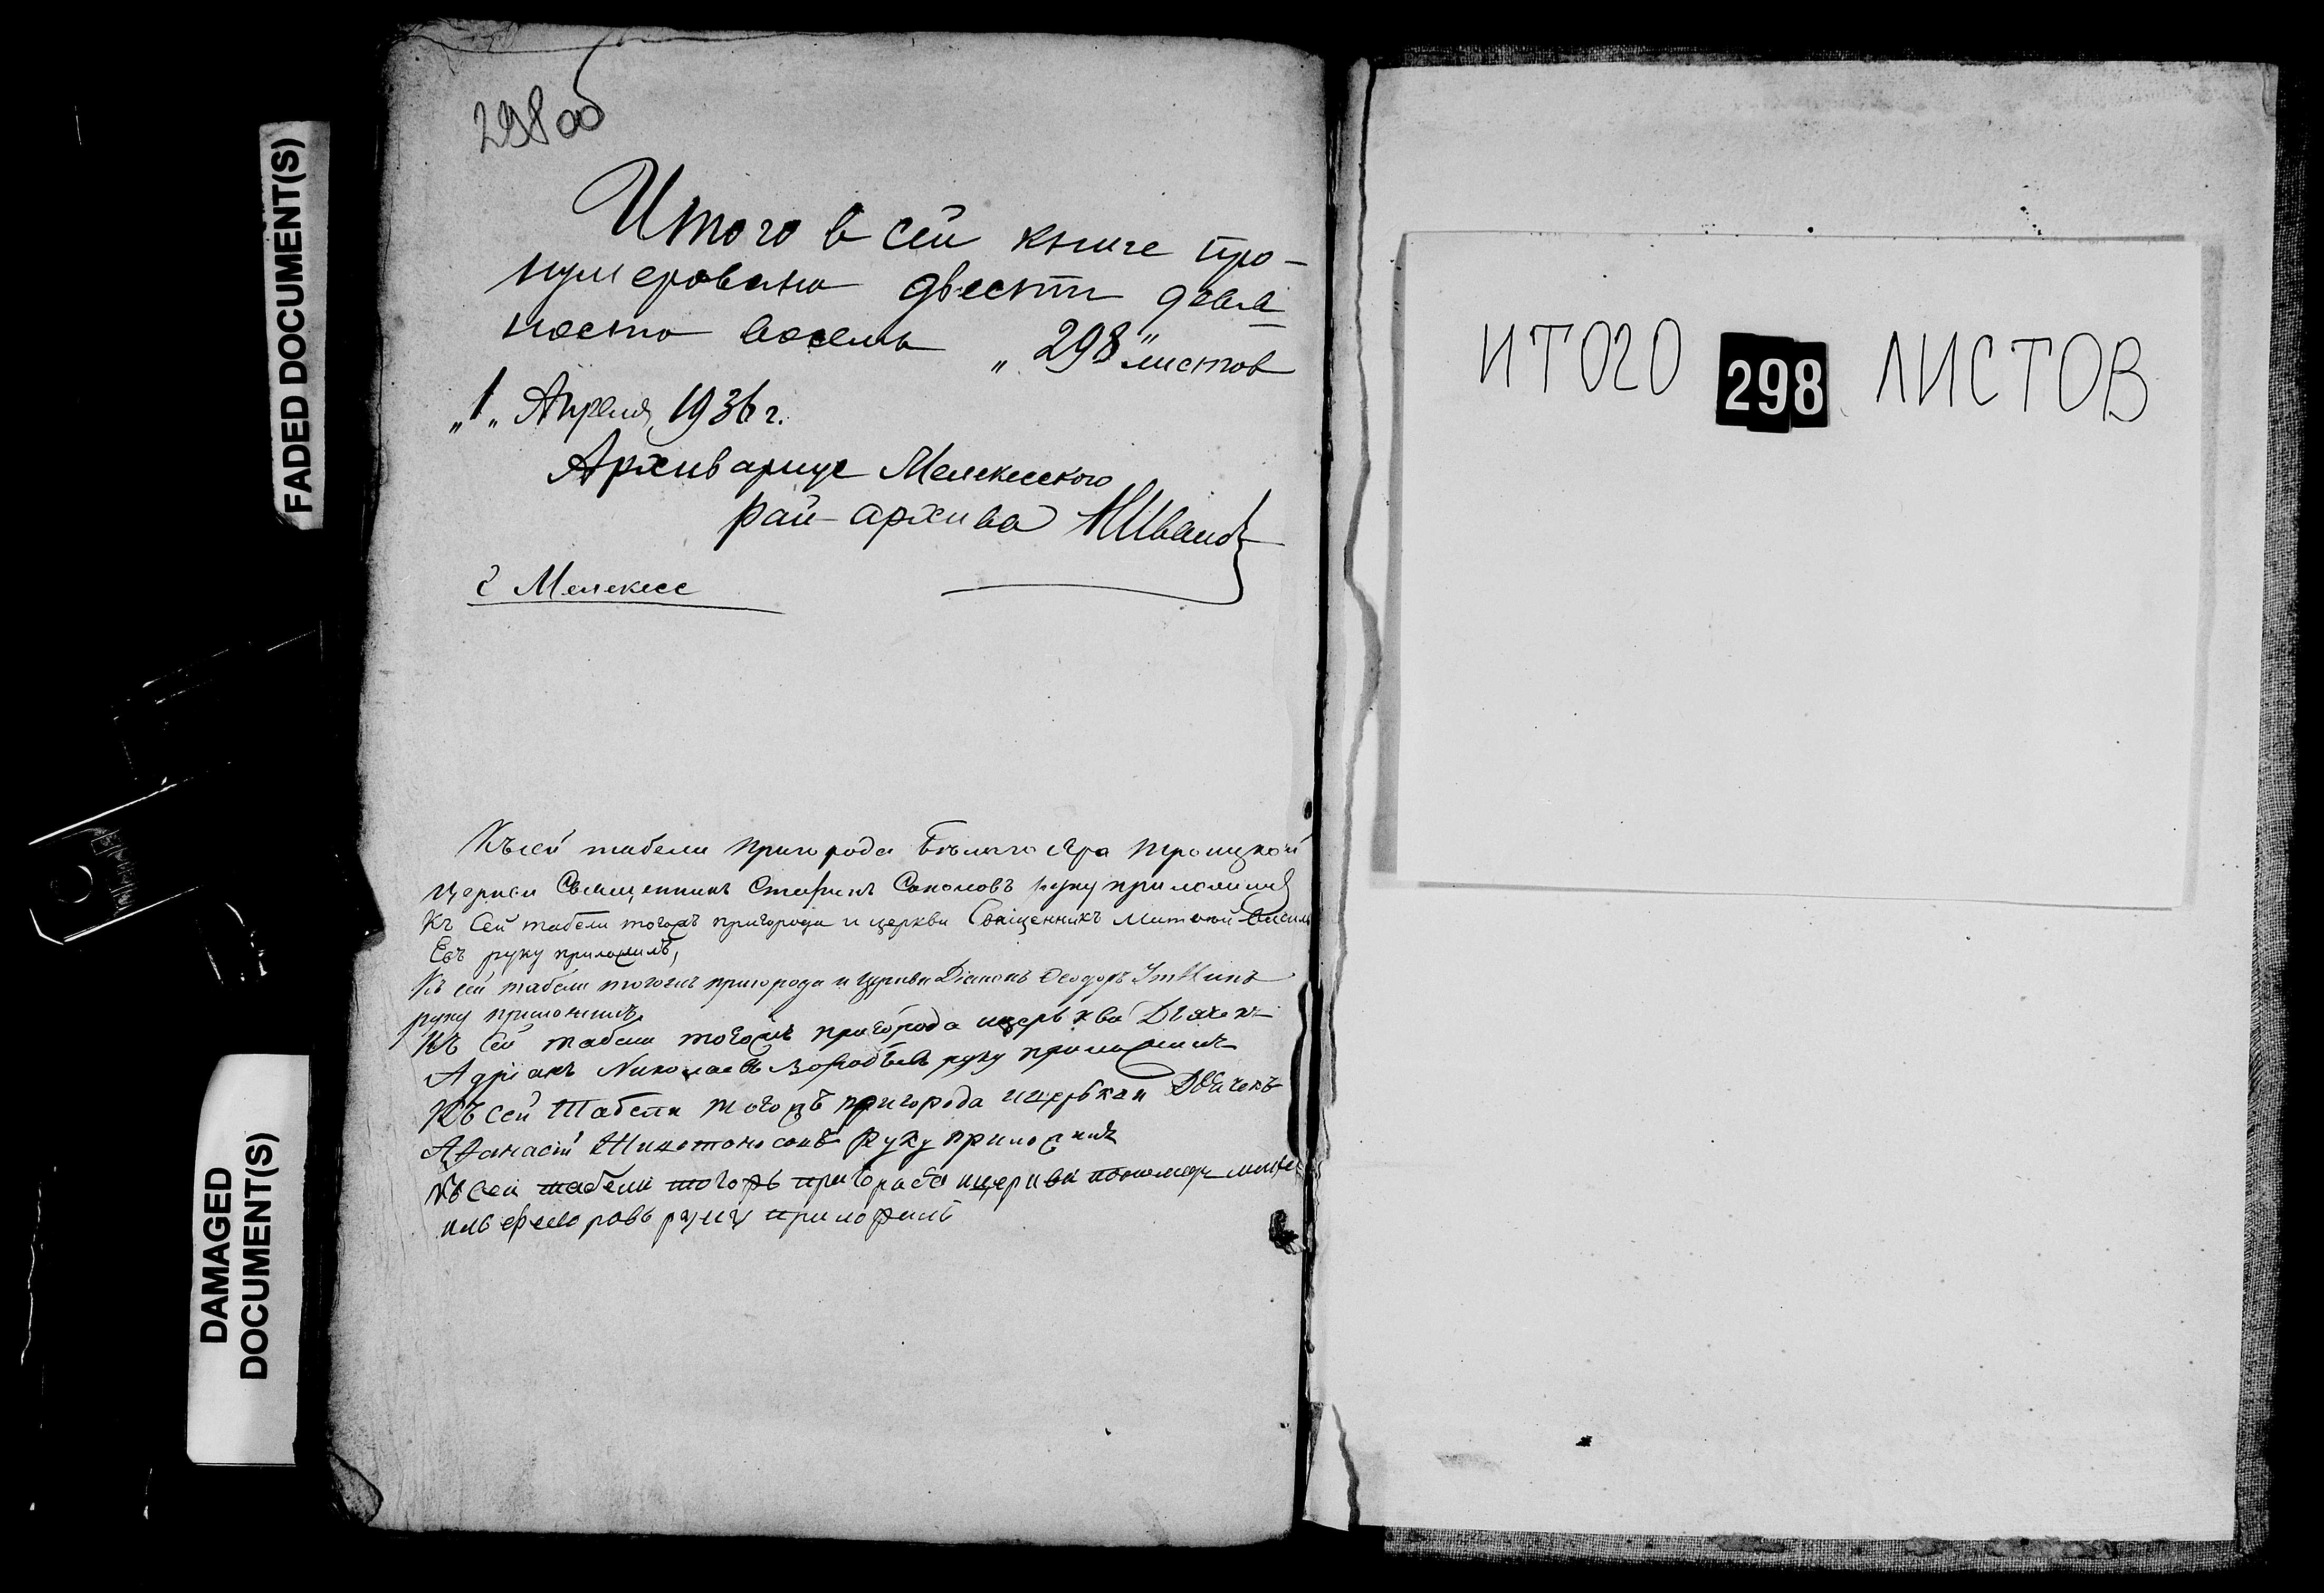 FADED DOCUMENT(S)
DAMAGED
DOCUMENT(S)
298об
Итого в сей книге про-
нумеровано двести девя
носто восемь „298" листов
„1„ Апреля 1936 г.
Архивариус Мелекесского
рай-архива НИванов
г Мелекесс
Къ сей табели пригорода Бѣлаго Яра Троицкой
церкви Священникъ Стефанъ Соколовъ руку приложилъ
Къ Сей табели тогожъ пригорода и церкви Священникъ Василь
Евъ руку приложилъ,
Къ сей табели тогожъ пригорода и церкви Діаконъ Ѳеодоръ
руку приложилъ
Къ Сей табели тогожъ пригорода ицерькви Дьячекъ
Адріанъ Николаевъ руку приложилъ
Къ сей Табели тогожъ пригорода ицерькви Дьячекъ
Аѳанасій руку приложилъ
Къ сей табели тогожъ пригорода ицеркви пономарь
руку приложилъ
ИТОГО 298 ЛИСТОВ